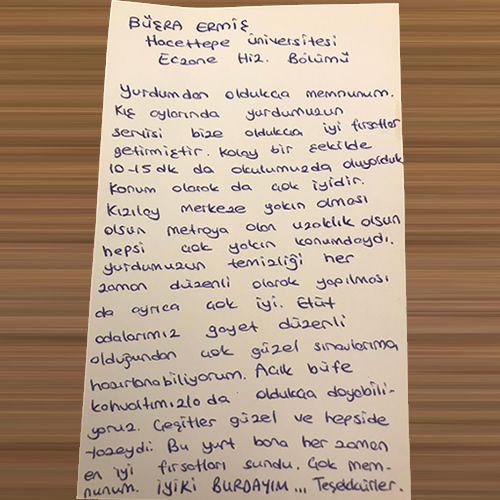 BÜŞRA ERMİŞ
Hacettepe üniversitesi
Eczane Hiz. Bölümü
Yurdumdan oldukça memnunum.
Kış aylarında yurdumuzun
servisi bize oldukça iyi fırsatlar
getirmiştir. Kolay bir şekilde
10-15 dk da okulumuzda oluyorduk
Konum olarak da çok iyidir.
Kızılay merkeze yakın olması
olsun metroya olan uzaklık olsun
hepsi çok yakın konumdaydı.
yurdumuzun temizliği her
zaman düzenli olarak yapılması
da ayrıca çok iyi. Etüt
odalarımız gayet düzenli
olduğundan çok güzel sınavlarıma
hazırlanabiliyorum. Açık büfe
kahvaltımızla da oldukça doyabili-
yoruz. Çeşitler güzel ve hepside
tazeydi. Bu yurt bana her zaman
en iyi fırsatları sundu. Çok mem-
nunum. İYİKİ BURDAYIM... Teşekkürler.